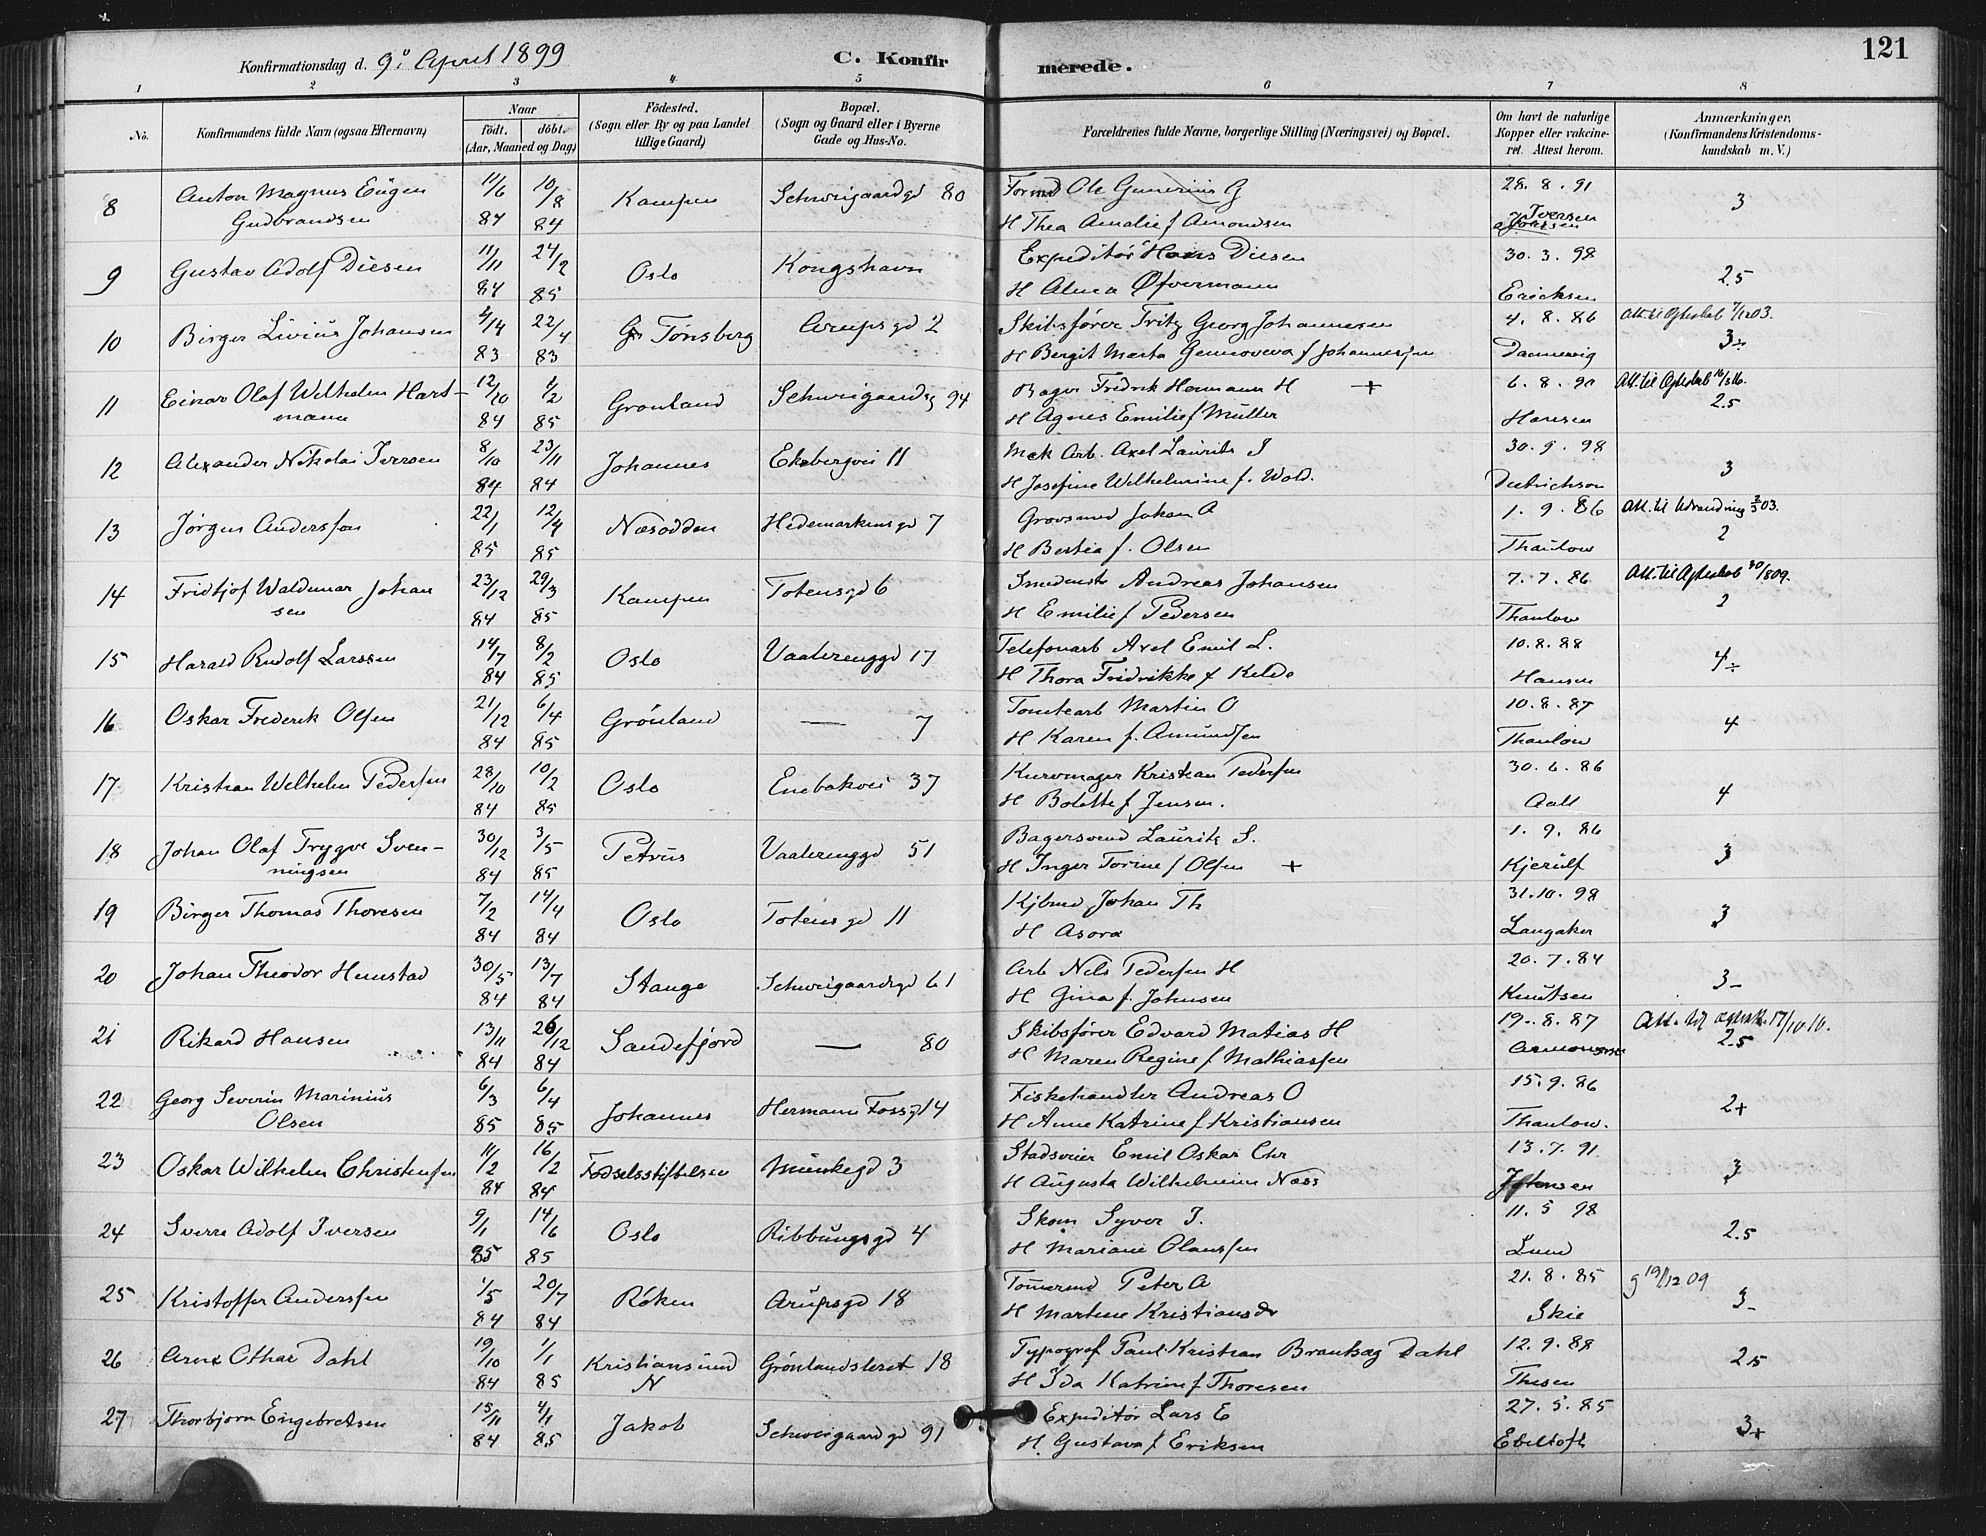 121
Konfirmationsdag d. 9. April 1899 C. Konfirmerede.
1 2 3 4 5 6 7 8
No. Konfirmandens fulde Navn (ogsaa Efternavn) Naar födt. döbt. (Aar, Maaned og Dag) Födested. (Sogn eller By og paa Landet tillige Gaard) Bopæl. (Sogn og Gaard eller i Byerne Gade og Hus-No. Forældrenes fulde Navne, borgerlige Stilling (Næringsvei) og Bopæl. Om havt de naturlige Kopper eller vakcineret. Attest herom. Anmærkninger. (Konfirmandens Kristendomskundskab m. V.)
8 Anton Magnus Eugen 11/6 10/8 Kampen Schweigaardgd 80 Formd Ole Gunerius G 28.8.91 3
Gudbrandsen 84 84 H Thea Amalie f Amondsen Iversen
9 Gustav Adolf Diesen 11/11 24/2 Oslo Kongshavn Expeditør Hans Diesen 30.3.98 2.5
84 85 H Alma Øfvermann Ericksen
10 Birger Livius Johansen 4/4 22/4 Tønsberg Arupsgd 2 Skibsfører Fritz Georg Johannesen 4.8.86 Att. til Ægteskab 7/12 03.
83 83 H Bergit Marta Gennoveva f Johannessen Dannevig 3÷
11 Einar Olaf Wilhelm Hart- 12/10 1/2 Grønland Schweigaardsg 94 Bager Fredrik Hermann H + 6.8.90 Att. til Ægteskab 16/3 16.
mann 84 85 H Agnes Emilie f Müller Hansen 2.5
12 Alexander Nikolai Iversen 8/10 23/11 Johannes Ekebergvei 11 Mek Arb. Axel Laurits I 30.9.98 3
84 84 H Josefine Wilhelmine f. Wold. Dietrichson
13 Jørgen Anderssen 22/1 12/4 Næsodden Hedemarkensgd 7 Grovsmed Johan A 1.9.86 Att. til Udvandring 3/3 03.
85 85 H Bertea f. Olsen Thaulow 2
14 Fridtjof Waldemar Johan 23/12 29/3 Kampen Totensgd 6 Smedmstr Andreas Johansen 7.7.86 Att. til Ægteskab 30/8 09.
sen 84 85 H Emilie f Pedersen Thaulow 2
15 Harald Rudolf Larssen 14/7 8/2 Oslo Vaalerenggd 17 Telefonarb Axel Emil L. 10.8.88 4÷
84 85 H Thora Fredrikke f Kelde Hansen
16 Oskar Frederik Olsen 21/12 6/4 Grønland — 7 Tomtearb Martin O 10.8.87 4
84 85 H Karen f. Amundsen Thaulow
17 Kristian Wilhelm Pedersen 28/10 10/2 Oslo Enebakvei 37 Kurvmager Kristian Pedersen 30.6.86 4
84 85 H Bolette f Jensen. Aall
18 Johan Olaf Trygve Sven- 30/12 3/5 Petrus Vaalerenggd 51 Bagersvend Laurits S. 1.9.86 3
ningsen 84 85 H Inger Torine f Olsen + Kjerulf
19 Birger Thomas Thoresen 7/2 14/4 Oslo Totensgd 11 Kjbmd Johan Th 31.10.98 3
84 84 H Asora Langaker
20 Johan Theodor Hemstad 30/5 13/7 Stange Schweigaardsgd 61 Arb Nils Pedersen H 20.7.84 3-
84 84 H Gina f. Johnsen Knutsen
21 Rikard Hansen 13/11 26/12 Sandefjord — 80 Skibsfører Edvard Matias H 19.8.87 Att. til Ægtesk. 17/10 10.
84 84 H Maren Regine f Mathiassen 2.5
22 Georg Severin Marinius 6/3 6/4 Johannes Hermann Fossgd 14 Fiskehandler Andreas O 15.9.86 2+
Olsen 85 85 H Anne Katrine f Kristiansen Thaulow.
23 Oskar Wilhelm Christensen 11/2 16/2 Fødselsstiftelsen Munkegd 3 Stadsveier Emil Oskar Chr 13.7.91 3
84 84 H Augusta Wilhelmine Næss
24 Sverre Adolf Iversen 9/1 14/6 Oslo Ribbungsgd 4 Skom Syver I. 11.5 98 2.5
85 85 H Mariane Olaussen Lund
25 Kristoffer Anderssen 1/5 20/7 Røken Arupsgd 18 Tømrmd Peter A 21.8.85 g 19/12 09
84 84 H Martine Kristiansdr Skie 3-
26 Arne Othar Dahl 19/10 1/1 Kristiansund Grønlandsleret 18 Typograf Paul Kristian Brantsæg Dahl 12.9.88 2.5
84 85 N H Ida Katrine f Thoresen Thesen
27 Thorbjørn Engebretsen 15/11 4/1 Jakob Schweigaardgd 91 Expeditør Lars E 27.5.85 3+
84 85 H Gustava f Eriksen Ebeltoft